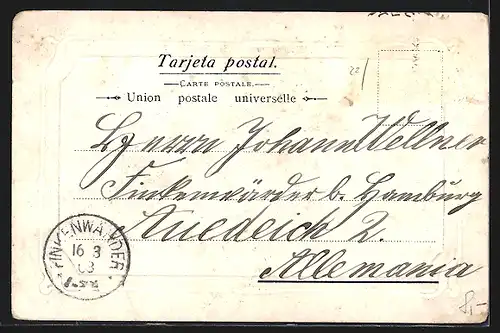 Tarjeta postal.
CARTE POSTALE.
Union postale universelle
22/
Herrn Johann Wellner
Finkenwärder b. Hamburg
Auedeich 2.
Allemania
FINKENWÄRDER
16 3
03
8,-